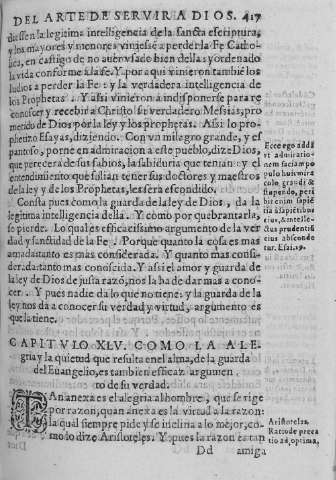 DEL ARTE DE SERVIR A DIOS. 417
diessen la legitima inteligencia de la sancta escriptura,
y los mayores y menores viniesse a perder la Fe Catho-
lica, en castigo de no auer vsado bien della: y ordenado
la vida conforme a la fe. Y por aqui vinieron tambié los
Iudios a perder la Fe: y la verdadera inteligencia de
los Prophetas. Y assi vinieron a indisponerse para re
conoscer y recebir a Christo su verdadero Messias, pro
metido de Dios por la ley y los prophetas. Assi lo pro-
phetizo Esayas, diziendo. Con vn milagro grande, y es
pantoso, porne en admiracion a este pueblo, dize Dios,
que perecera de sus sabios, la sabiduria que tenian: y el
entendimiento que solian tener sus doctores y maestros
de la ley y de los Prophetas, les sera escondido.
Consta pues como la guarda de la ley de Dios, da la
legitima inteligencia della. Y como por quebrantarla,
se pierde. Lo qual es efficacissimo argumento de la ver
dad y sanctidad de la Fe. Porque quanto la cosa es mas
amada, tanto es mas considerada. Y quanto mas consi-
derada, tanto mas conoscida. Y assi el amor y guarda de
la ley de Dios de justa razó, nos la ha de dar mas a cono-
cer. Y pues nadie da lo que no tiene: y la guarda de la
ley nos da a conocer su verdad y virtud, argumento es
que la tiene.
Ecce ego addã
vt admiratio-
nem faciam po
pulo huic mira
culo grandi &
stupendo, peri
bit enim sapiẽ
tia à sapiẽtibus
eius, & intelle-
ctus prudentiũ
eius abscondetur. Esai. 29.
CAPITVLO XLV. COMO LA ALE
gria y la quietud que resulta en el alma, de la guarda
del Euangelio, es tambien efficaz argumen
to de su verdad.
TAn anexa es el alegria al hombre, que se rige
por razon, quan anexa es la virtud a la razon:
la qual siempre pide y se inclina a lo mejor, co-
mo lo dize Aristoteles. Y pues la razon es tan
Aristoteles.
Ratio depreca
tio ad optima,
Dd amiga